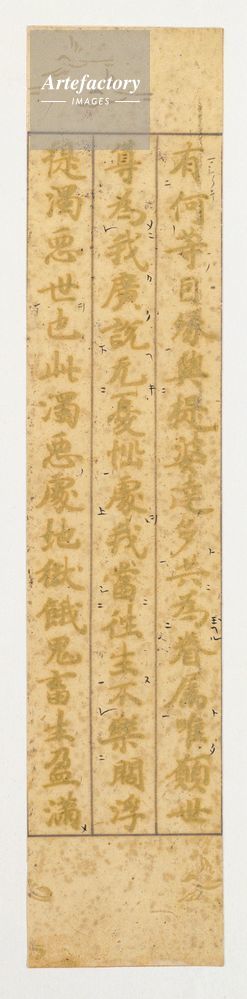 有何等因縁与提婆達多共為眷属唯願世
尊為我廣説无憂悩處我當往生不樂閻浮
提濁惡世也此濁惡處地獄餓鬼畜生盈滿
Artefactory
IMAGES